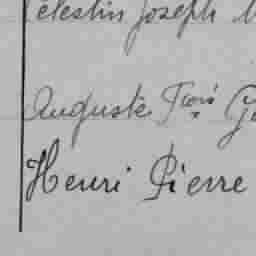 Célestin Joseph
Auguste Frois
Henri Pierre